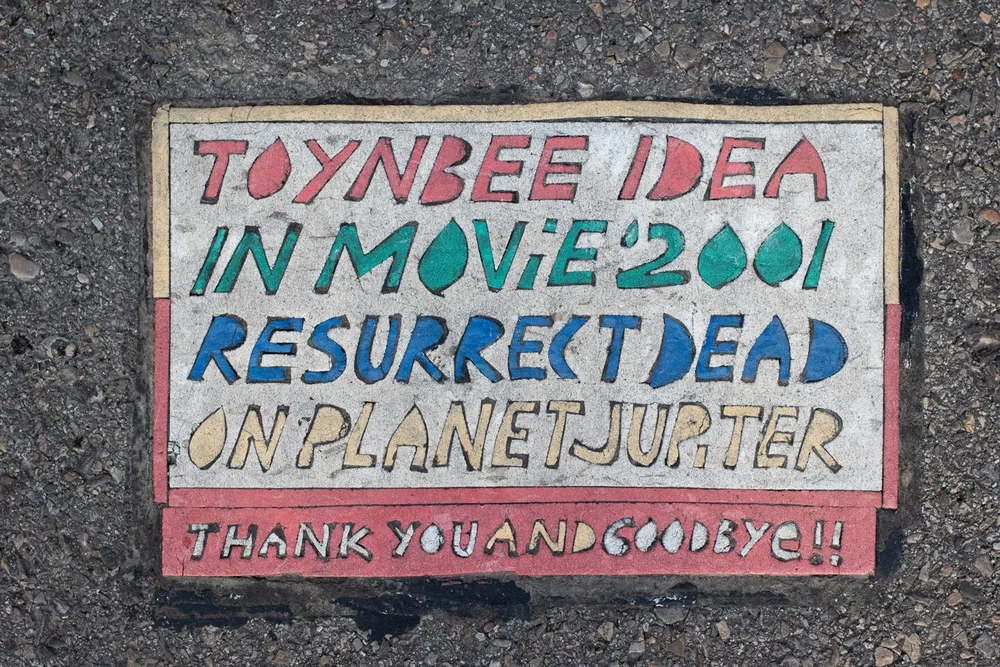 TOYNBEE IDEA
IN MOViE '2001
RESURRECT DEAD
ON PLANET JUPiTER
THANK YOU AND GOODBYe!!